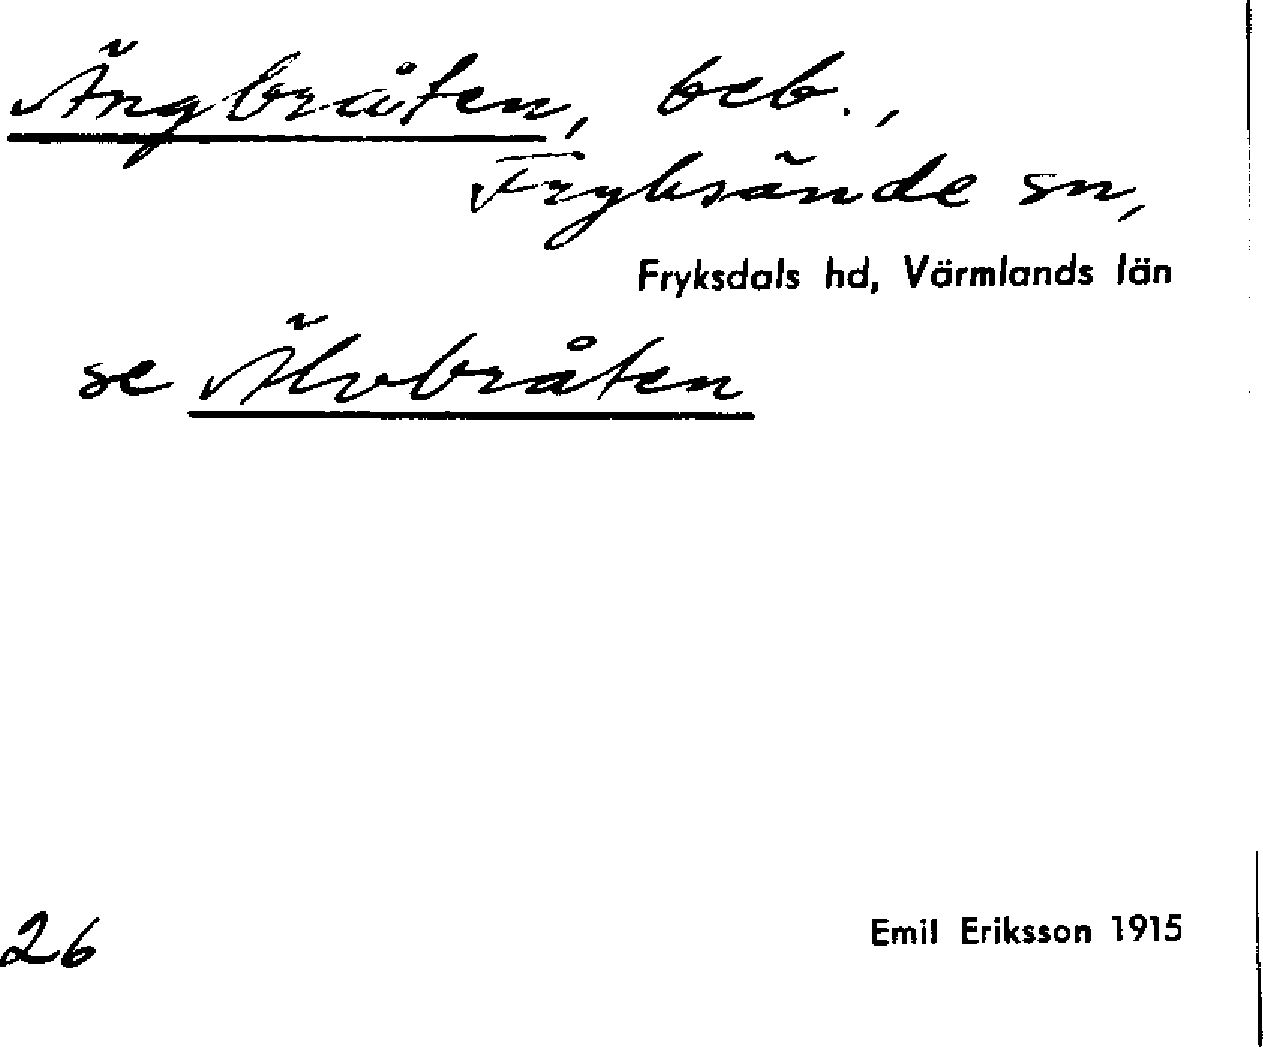 Ängbråten, beb.,
Fryksände sn,
Fryksdals hd, Värmlands län
se Älvbråten
26
Emil Eriksson 1915